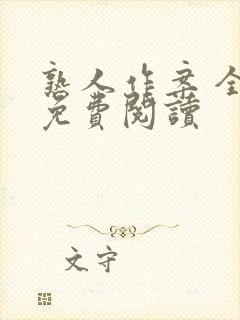 熟人作案全
免費閱讀
文守